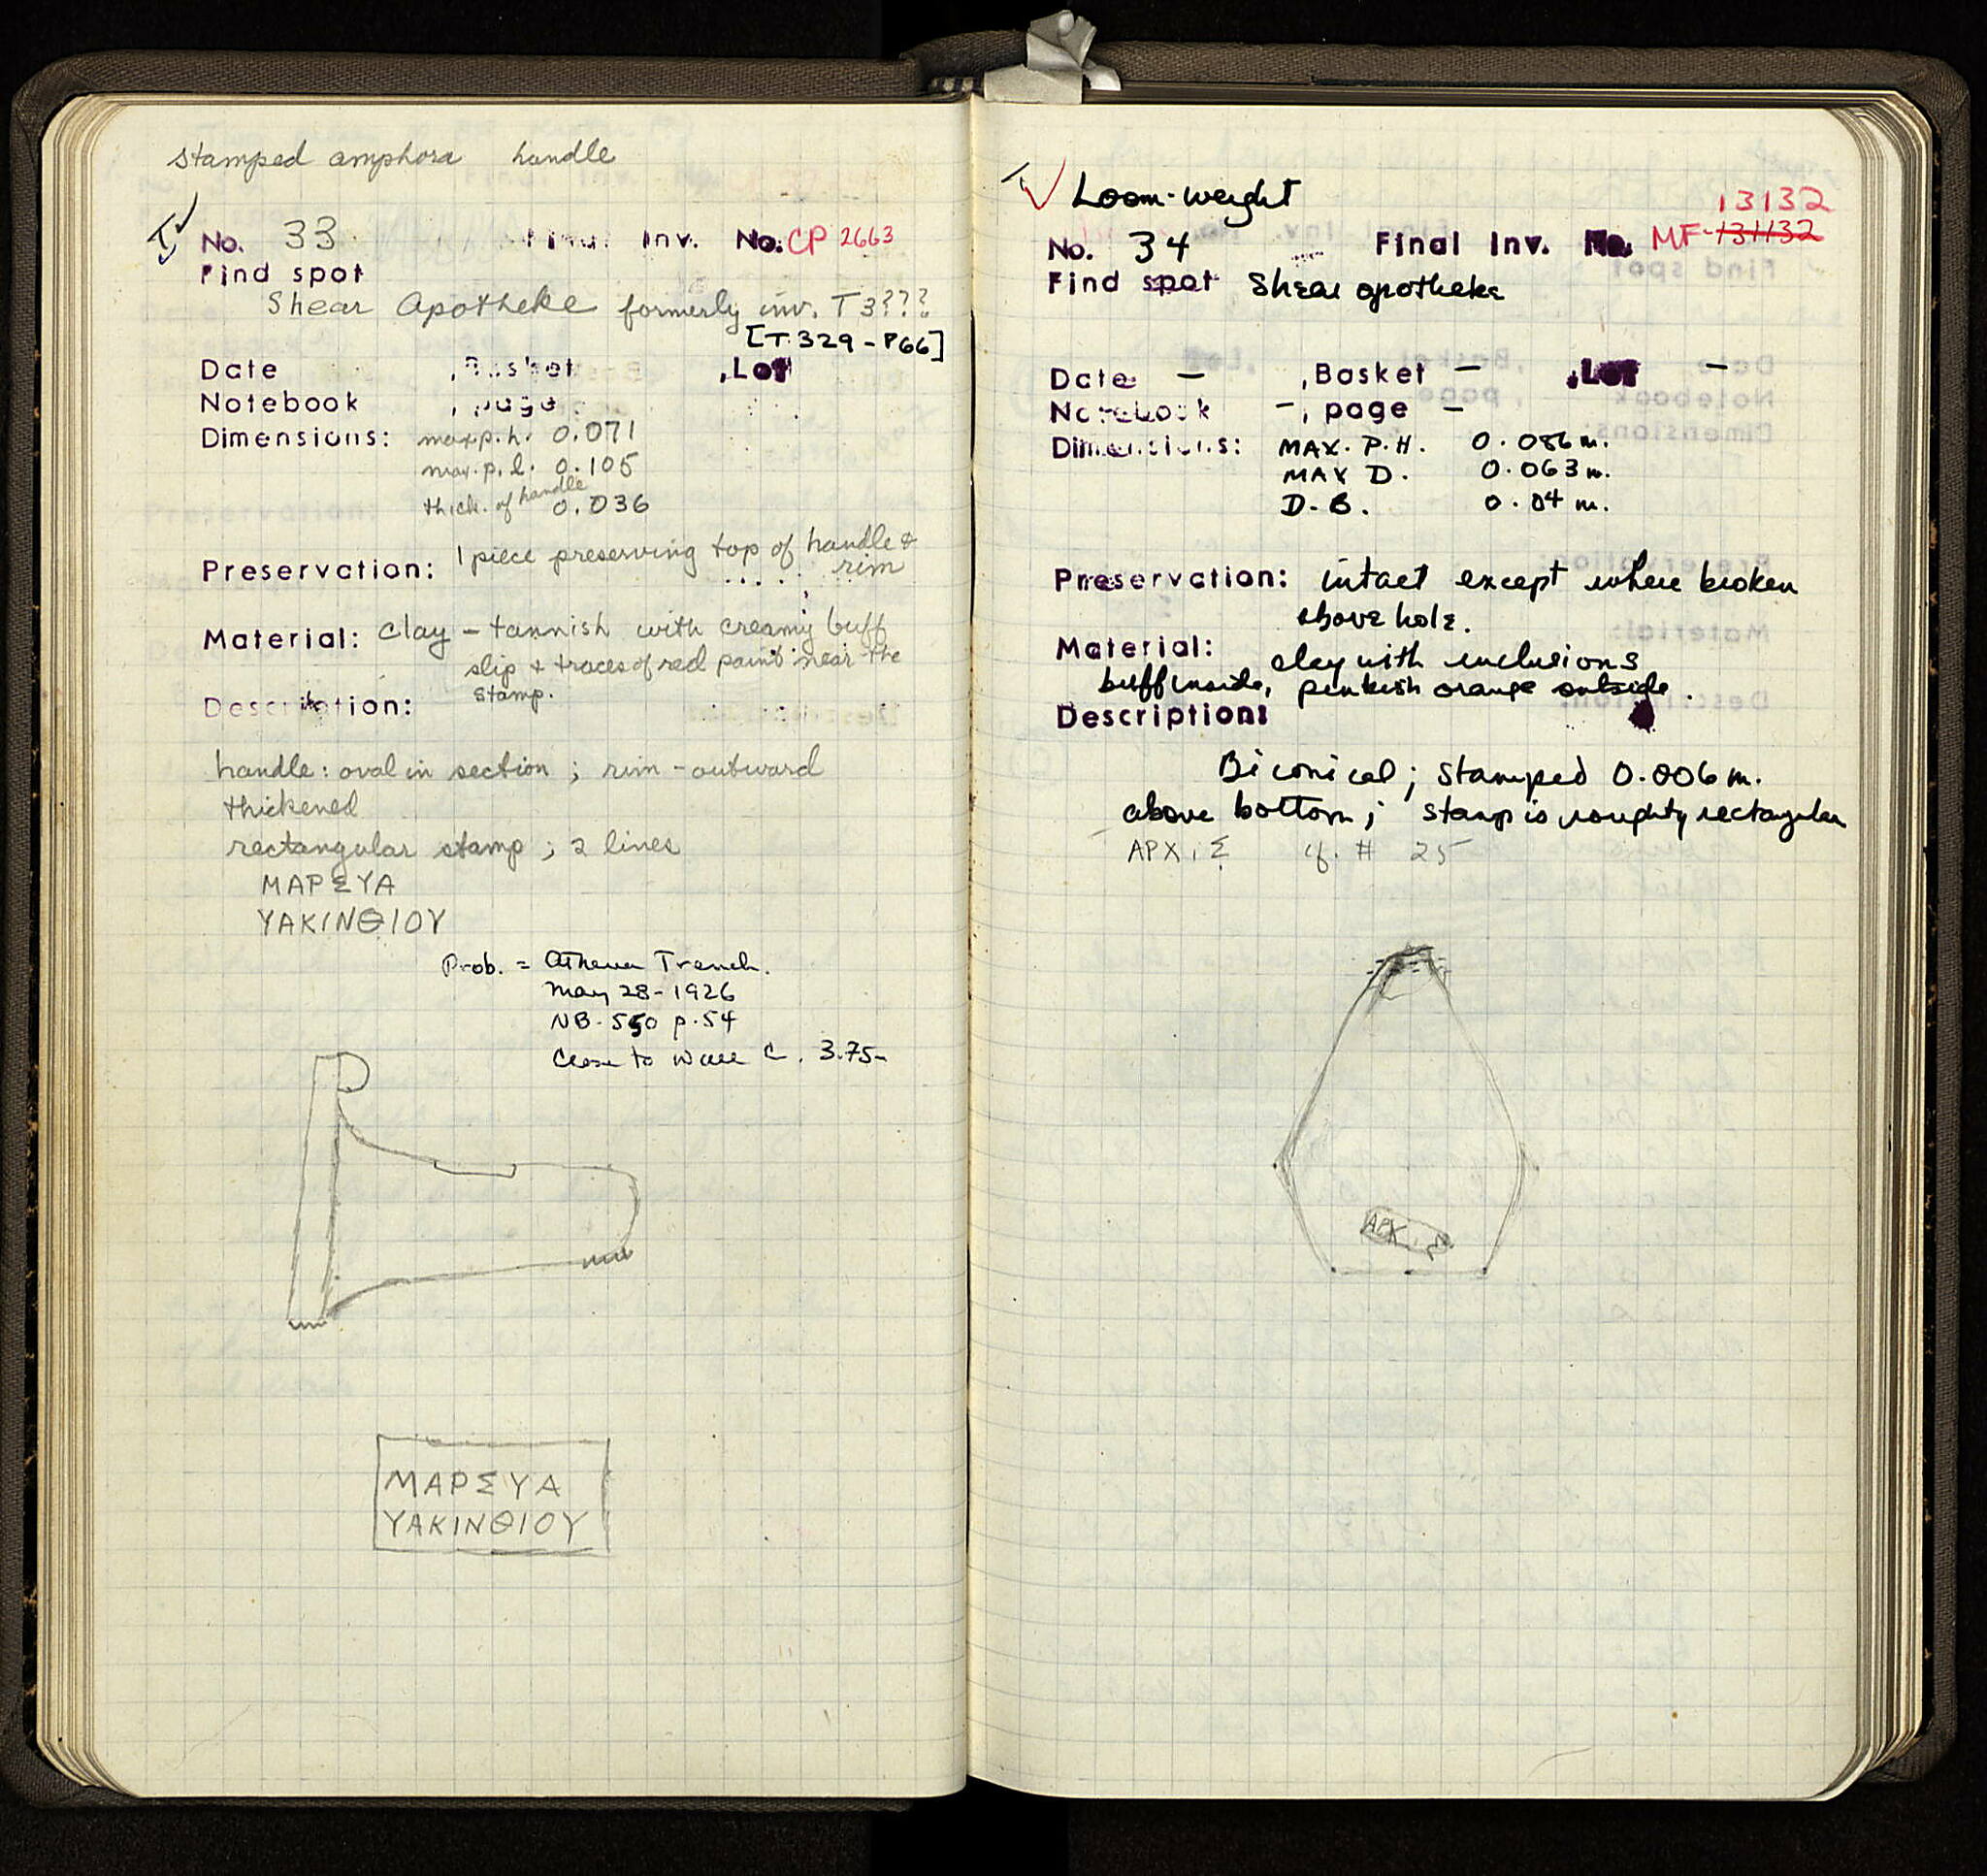 stamped amphora handle
No. 33 Final Inv. No. CP 2663
Find spot
Shear Apotheke formerly inv. T 3???
[T 329 - P66]
Date , Basket , Lot
Notebook , page
Dimensions: max. p. h. 0.071
max. p. l. 0.105
thick. of handle 0.036
Preservation: 1 piece preserving top of handle & rim
Material: clay - tannish with creamy buff
slip & traces of red paint near the
stamp.
Description:
handle: oval in section; rim - outward
thickened
rectangular stamp; 2 lines
ΜΑΡΣΥΑ
ΥΑΚΙΝΘΙΟΥ
Prob. = Athena Trench.
May 28-1926
NB. 550 p. 54
Close to wall C. 3.75m
ΜΑΡΣΥΑ
ΥΑΚΙΝΘΙΟΥ
Loom-weight
13132
No. 34 Final Inv. No. MF-131132
Find spot Shear apotheke
Date - , Basket - , Lot -
Notebook - , page -
Dimensions: MAX. P.H. 0.086 m.
MAX D. 0.063 m.
D. B. 0.04 m.
Preservation: intact except where broken
above hole.
Material: clay with inclusions
buff inside, pinkish orange outside.
Description:
Biconical; stamped 0.006 m.
above bottom; stamp is roughly rectangular
ΑΡΧ . Σ cf. # 25
ΑΡΧ . Σ